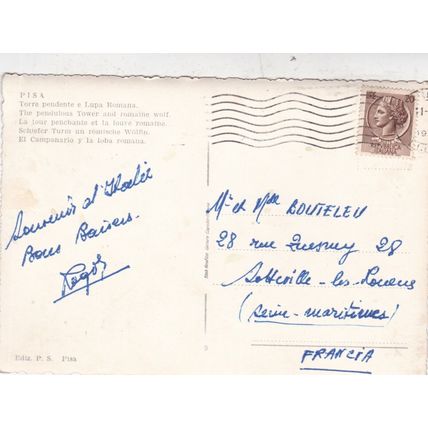 PISA
Torre pendente e Lupa Romana.
The pendulous Tower and romaine wolf.
La tour penchante et la louve romaine.
Schiefer Turm un römische Wölfin.
El Campanario y la loba romana.
Souvenir d'Italie
Bons Baisers.
Roger
Mr et Mlle BOUTELEU
28 rue Quesnay 28
Sotteville-les-Rouens
(Seine-maritimes)
FRANCIA
Ediz. P. S. Pisa
20